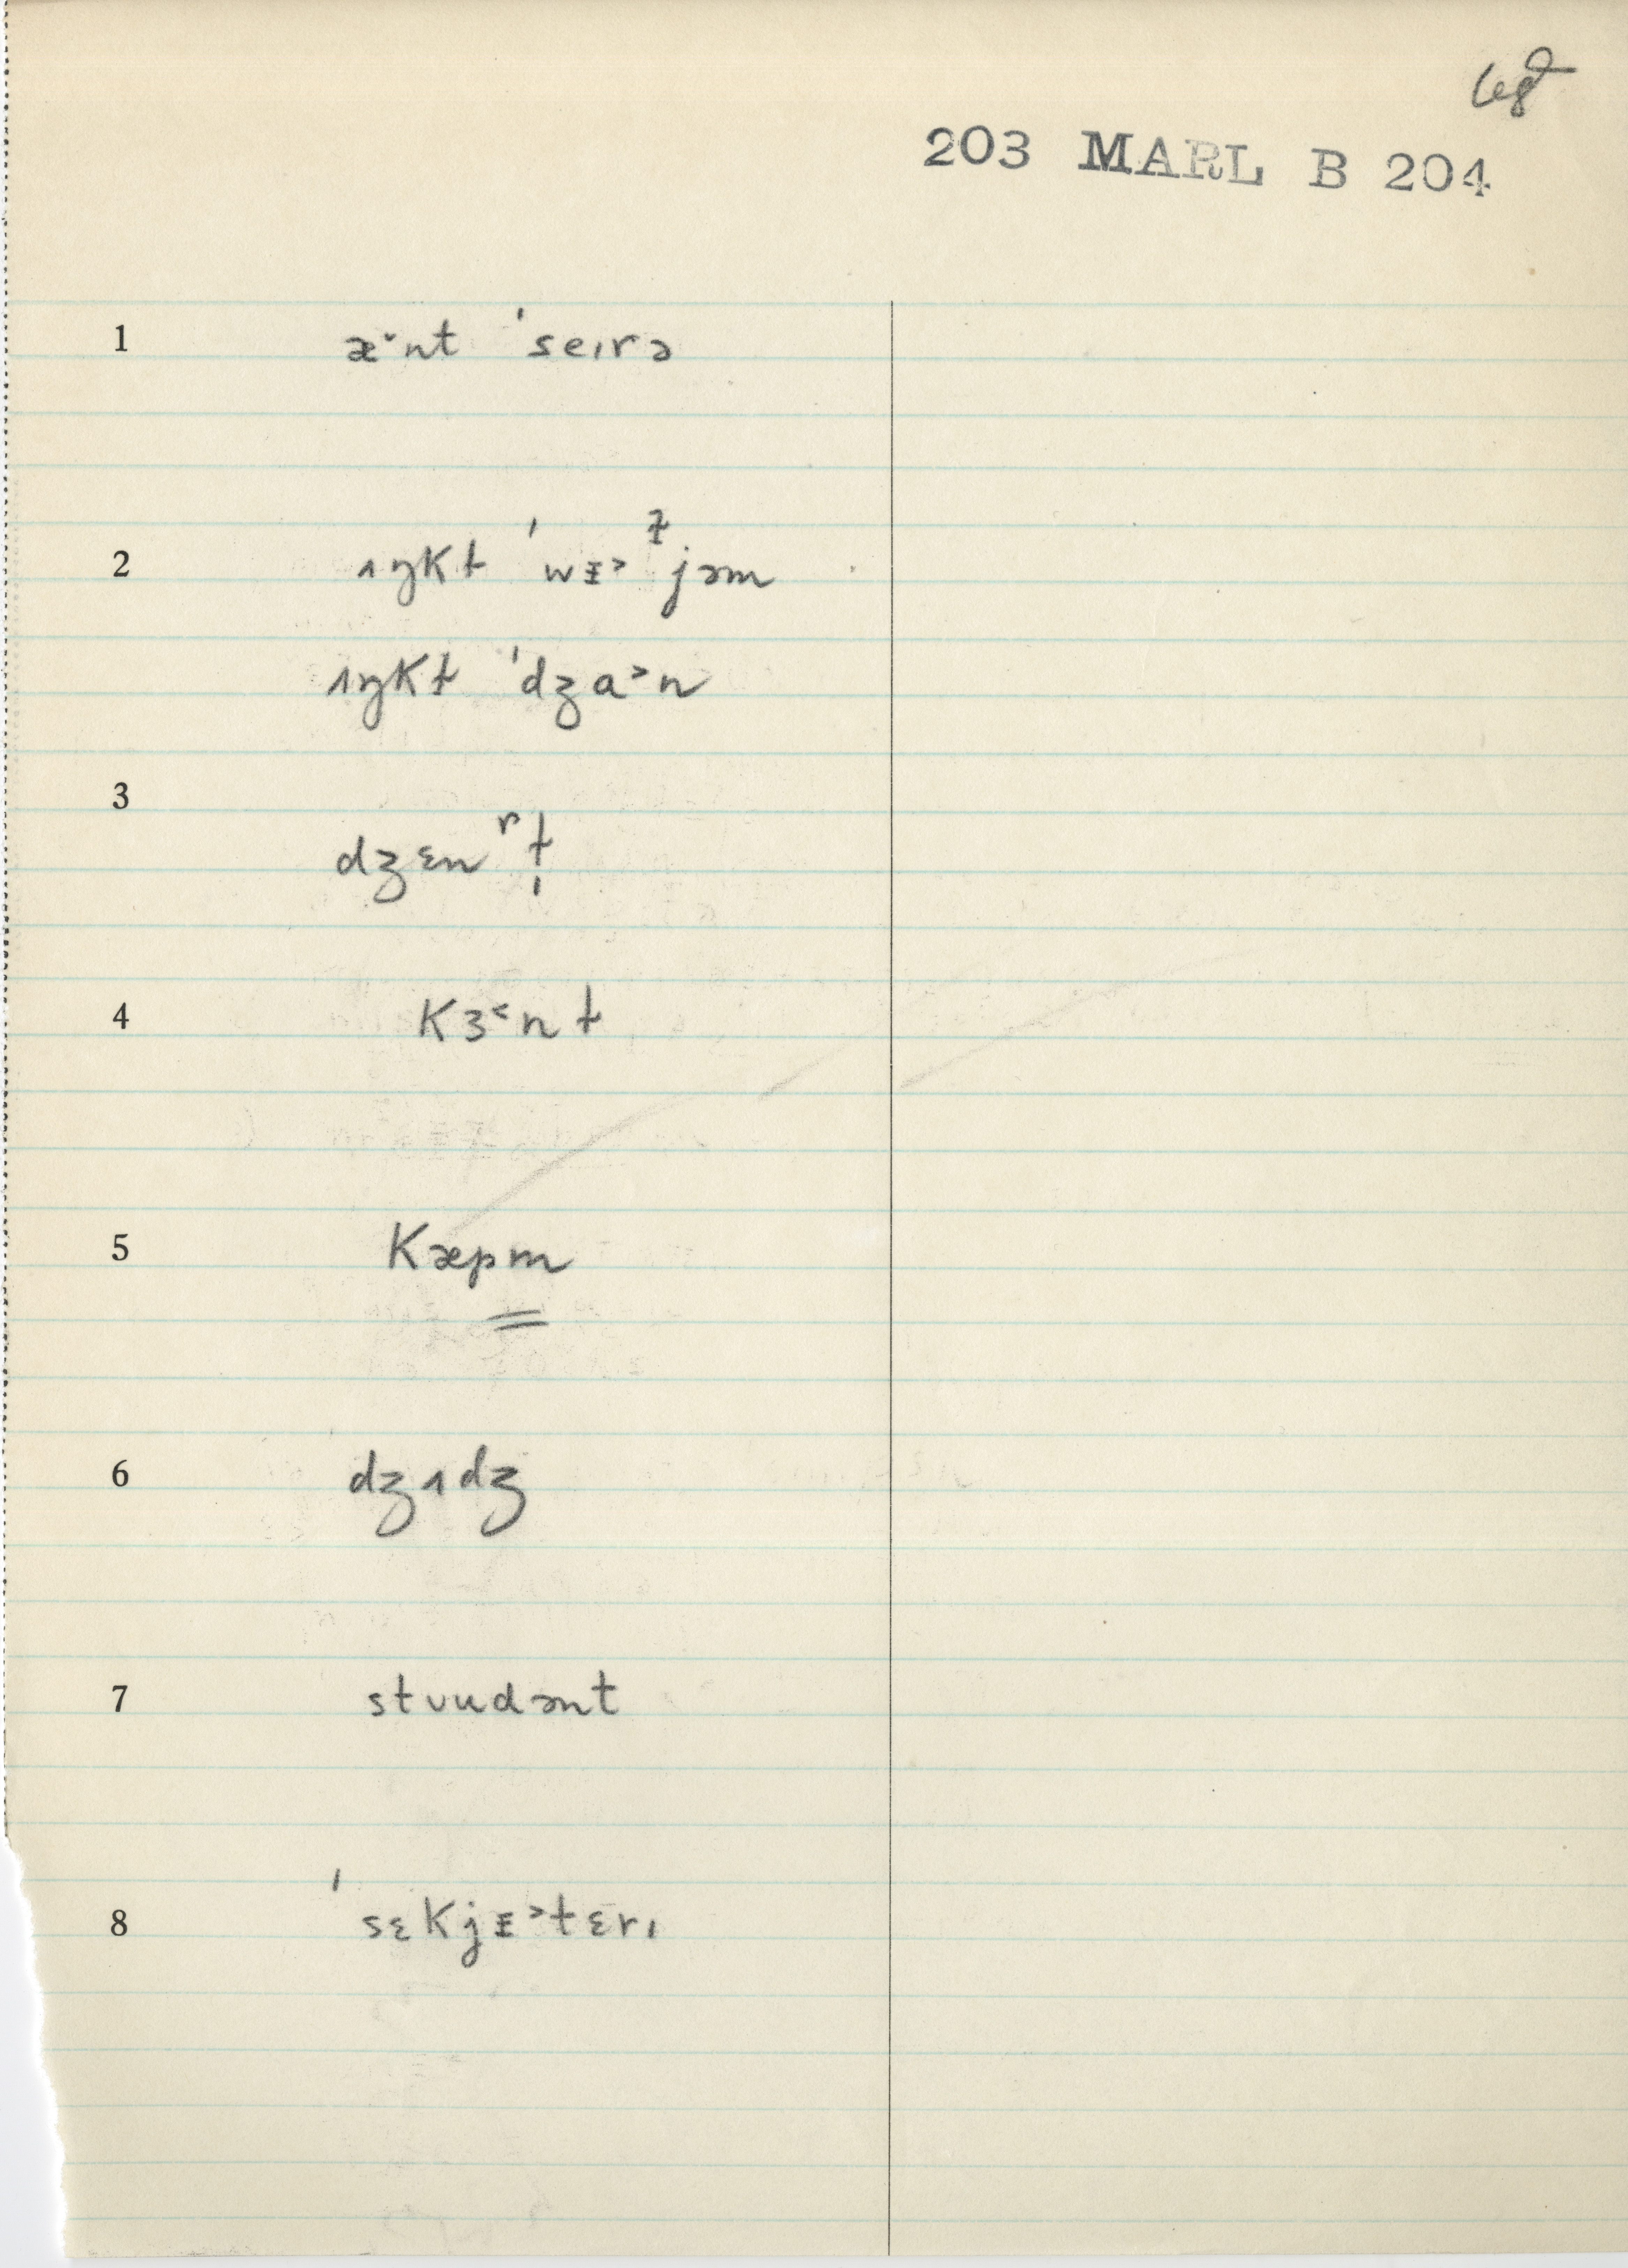 68
203 MARL B 204
1 æ˅nt ˈseɪrə
2 ʌŋkɫ ˈwᵻ˃ᶎjəm
ʌŋkɫ ˈdʒa˃n
3 dʒɛnʳɫ̩
4 kɜ˂nɫ
5 kæpm
6 dʒʌdʒ
7 stʊudənt
8 ˈsɛkjᵻ˃tɛrɪ